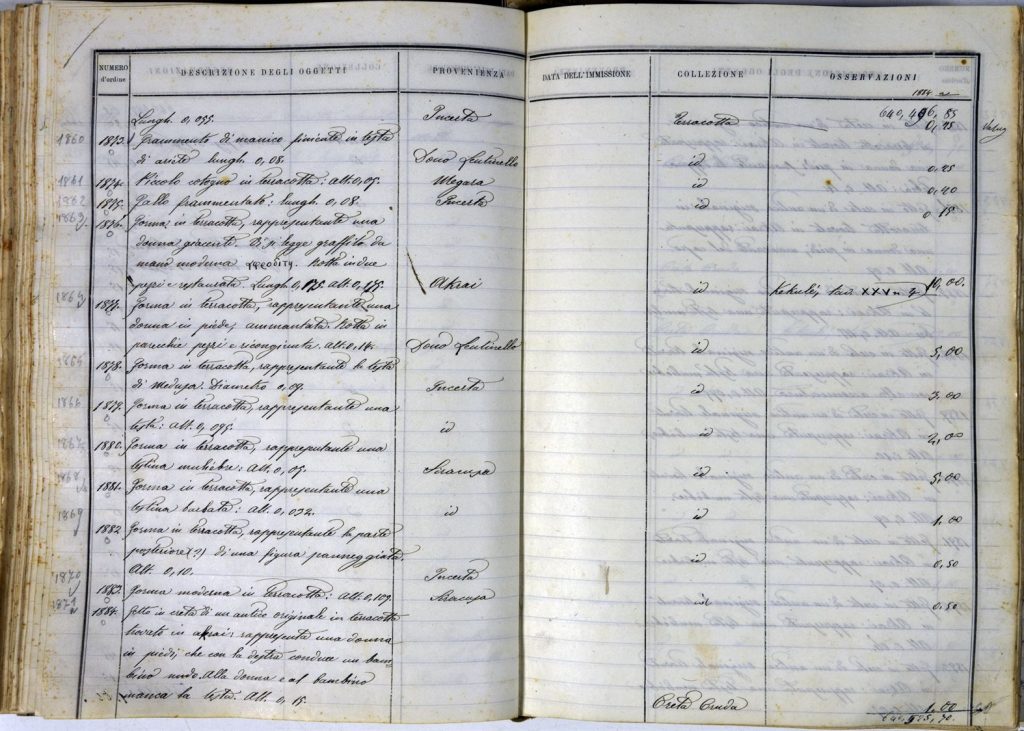 NUMERO d'ordine DESCRIZIONE DEGLI OGGETTI PROVENIENZA DATA DELL'IMMISSIONE COLLEZIONE OSSERVAZIONI
1884
Lungh. 0,055. Incerta Terracotta
1860 1873. Frammento di manico finiente in testa
di ariete lungh. 0,08. Dono Lentinello id 0,25
1861 1874. Piccolo cotogno in terracotta: Alt. 0,05. Megara id 0,40
1862 1875. Gallo frammentato: lungh. 0,08. Incerta id 0 15
1863 1876. Forma in terracotta, rappresentante una
donna giacente. Vi si legge graffito da
mano moderna Rotta in due
pezzi e restaurata. Lungh. 0,175 Alt. 0,175. Akrai id Kekulé, tav. XXV n 10,00.
1864 1877. Forma in terracotta, rappresentante una
donna in piede, ammantata. Rotta in
parecchie pezzi e ricongiunta. Alt. 0,14. Dono Lentinello id 5,00
1865 1878. Forma in terracotta, rappresentante la testa
di Medusa. Diametro 0,09. Incerta id 3,00
1866 1879. Forma in terracotta, rappresentante una
testa: Alt. 0,095. id id 2,00
1867 1880. Forma in terracotta, rappresentante una
testina muliebre: Alt. 0,05. Siracusa id 5,00
1868 1881. Forma in terracotta, rappresentante una
testina barbata: Alt. 0,032. id id 1,00
1869 1882 Forma in terracotta, rappresentante la parte
posteriore (?) di una figura panneggiata.
Alt. 0,10. Incerta id 0,50
1870 1883. Forma moderna in terracotta: Alt. 0,129. Siracusa id 0,50
1871 1884. Getto in creta di un antico originale in terracotta
trovato in Akrai: rappresenta una donna
in piedi, che con la destra conduce un bam
bino nudo. Alla donna e al bambino
manca la testa. Alt. 0,15. Creta Cruda 1,00